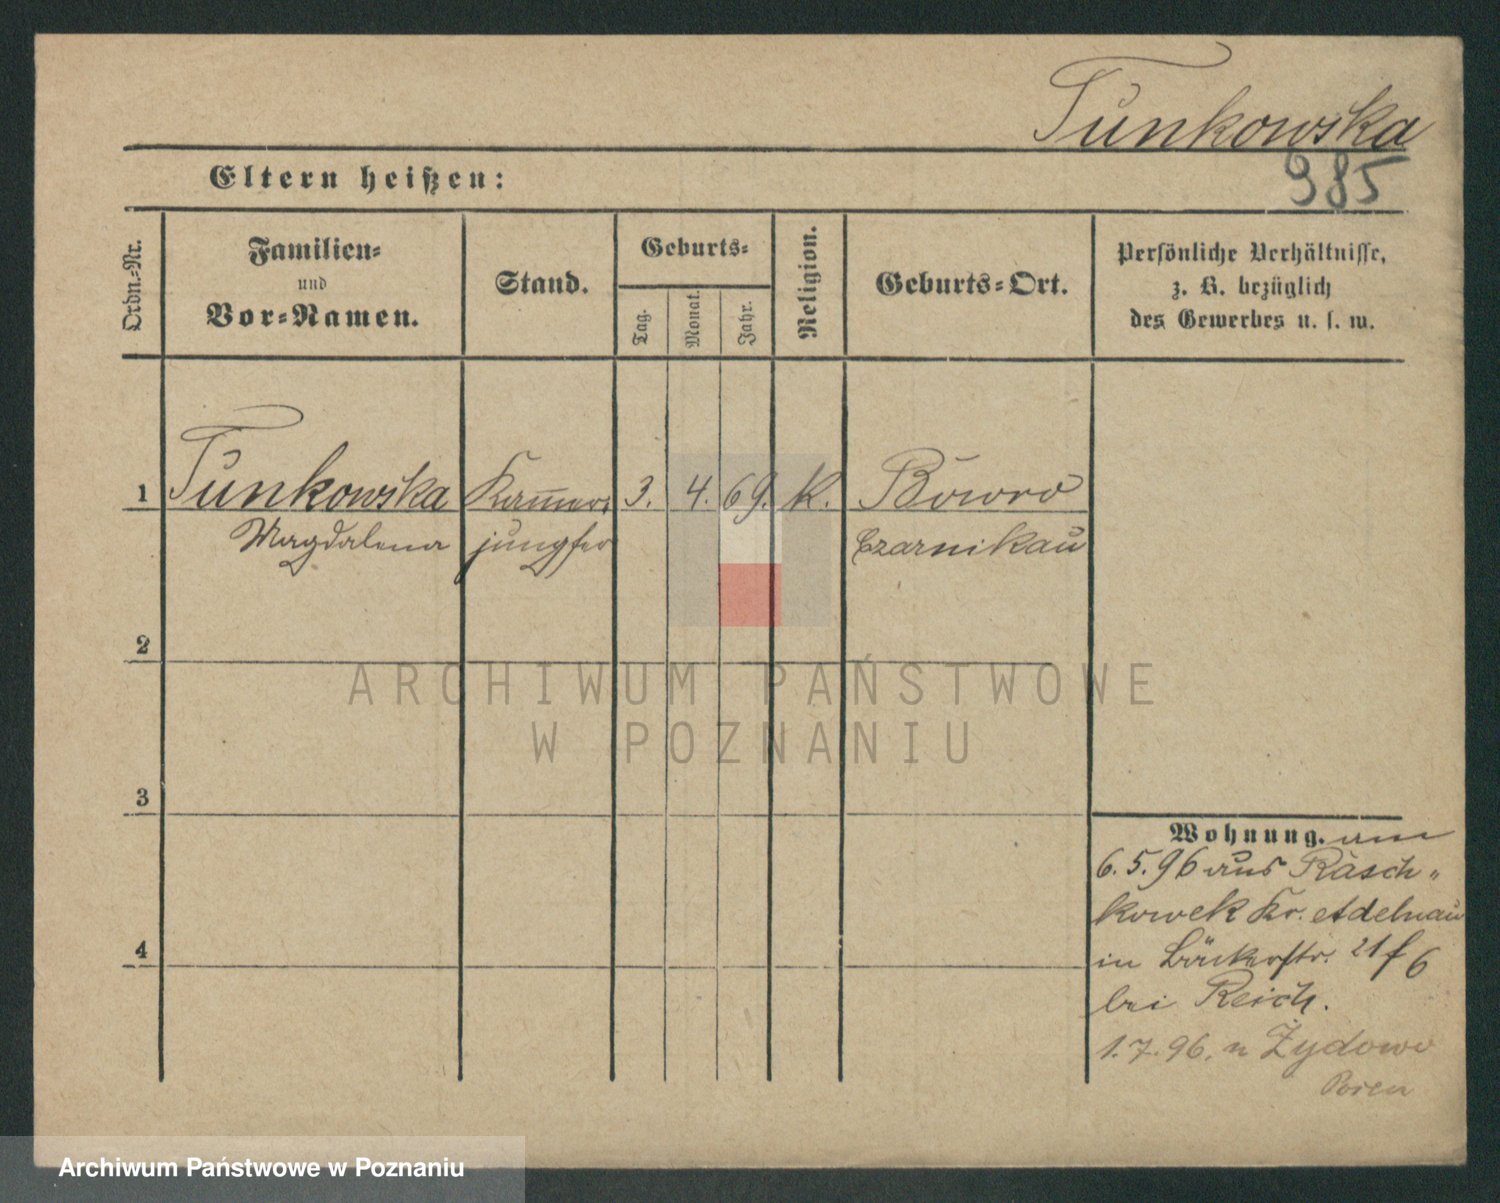 Tunkowska
985
Eltern heißen:
Ordn.-Nr.
Familien-
und
Vor-Namen.
Stand.
Geburts-
Tag.
Monat.
Jahr.
Religion.
Geburts-Ort.
Persönliche Verhältnisse,
z. B. bezüglich
des Gewerbes u. s. w.
1 Tunkowska Kammer- 3. 4. 69. k. Boworo
Magdalena jungfer Czarnikau
2
ARCHIWUM PAŃSTWOWE
W POZNANIU
3
4
Wohnung. am
6.5.96 aus Rasch-
kowek Kr. Adelnau
in Bäckerstr. 21 f 6
bei Reich.
1.7.96. n Żydowo
Posen
Archiwum Państwowe w Poznaniu